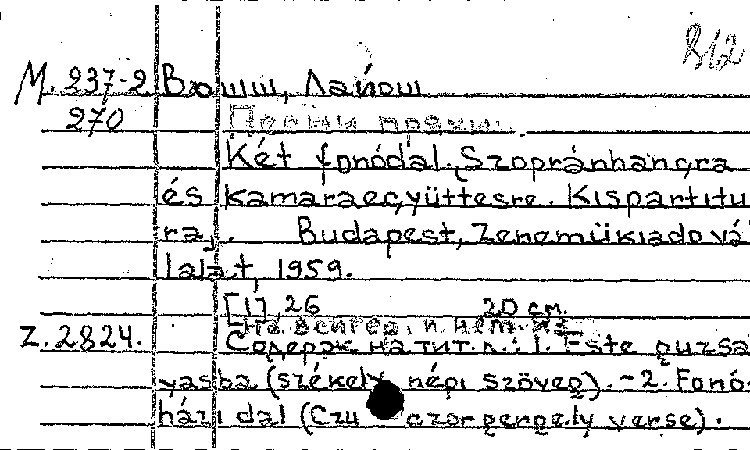 812
М. 237-2 Вошш, Лайош
270 Песни пряхи.
Két fonódal. Szopránhangra
és kamaraegyüttesre. Kispartitu
raj. Budapest, Zeneműkiadó vá
lalat, 1959.
[1], 26 20 см.
на венгер. и нем. яз.
Z.2824. Содерж на тит. л.: 1. Este guzsa
yasba (székely népi szöveg). - 2. Fonó-
házi dal (Czu czorgergely verse).